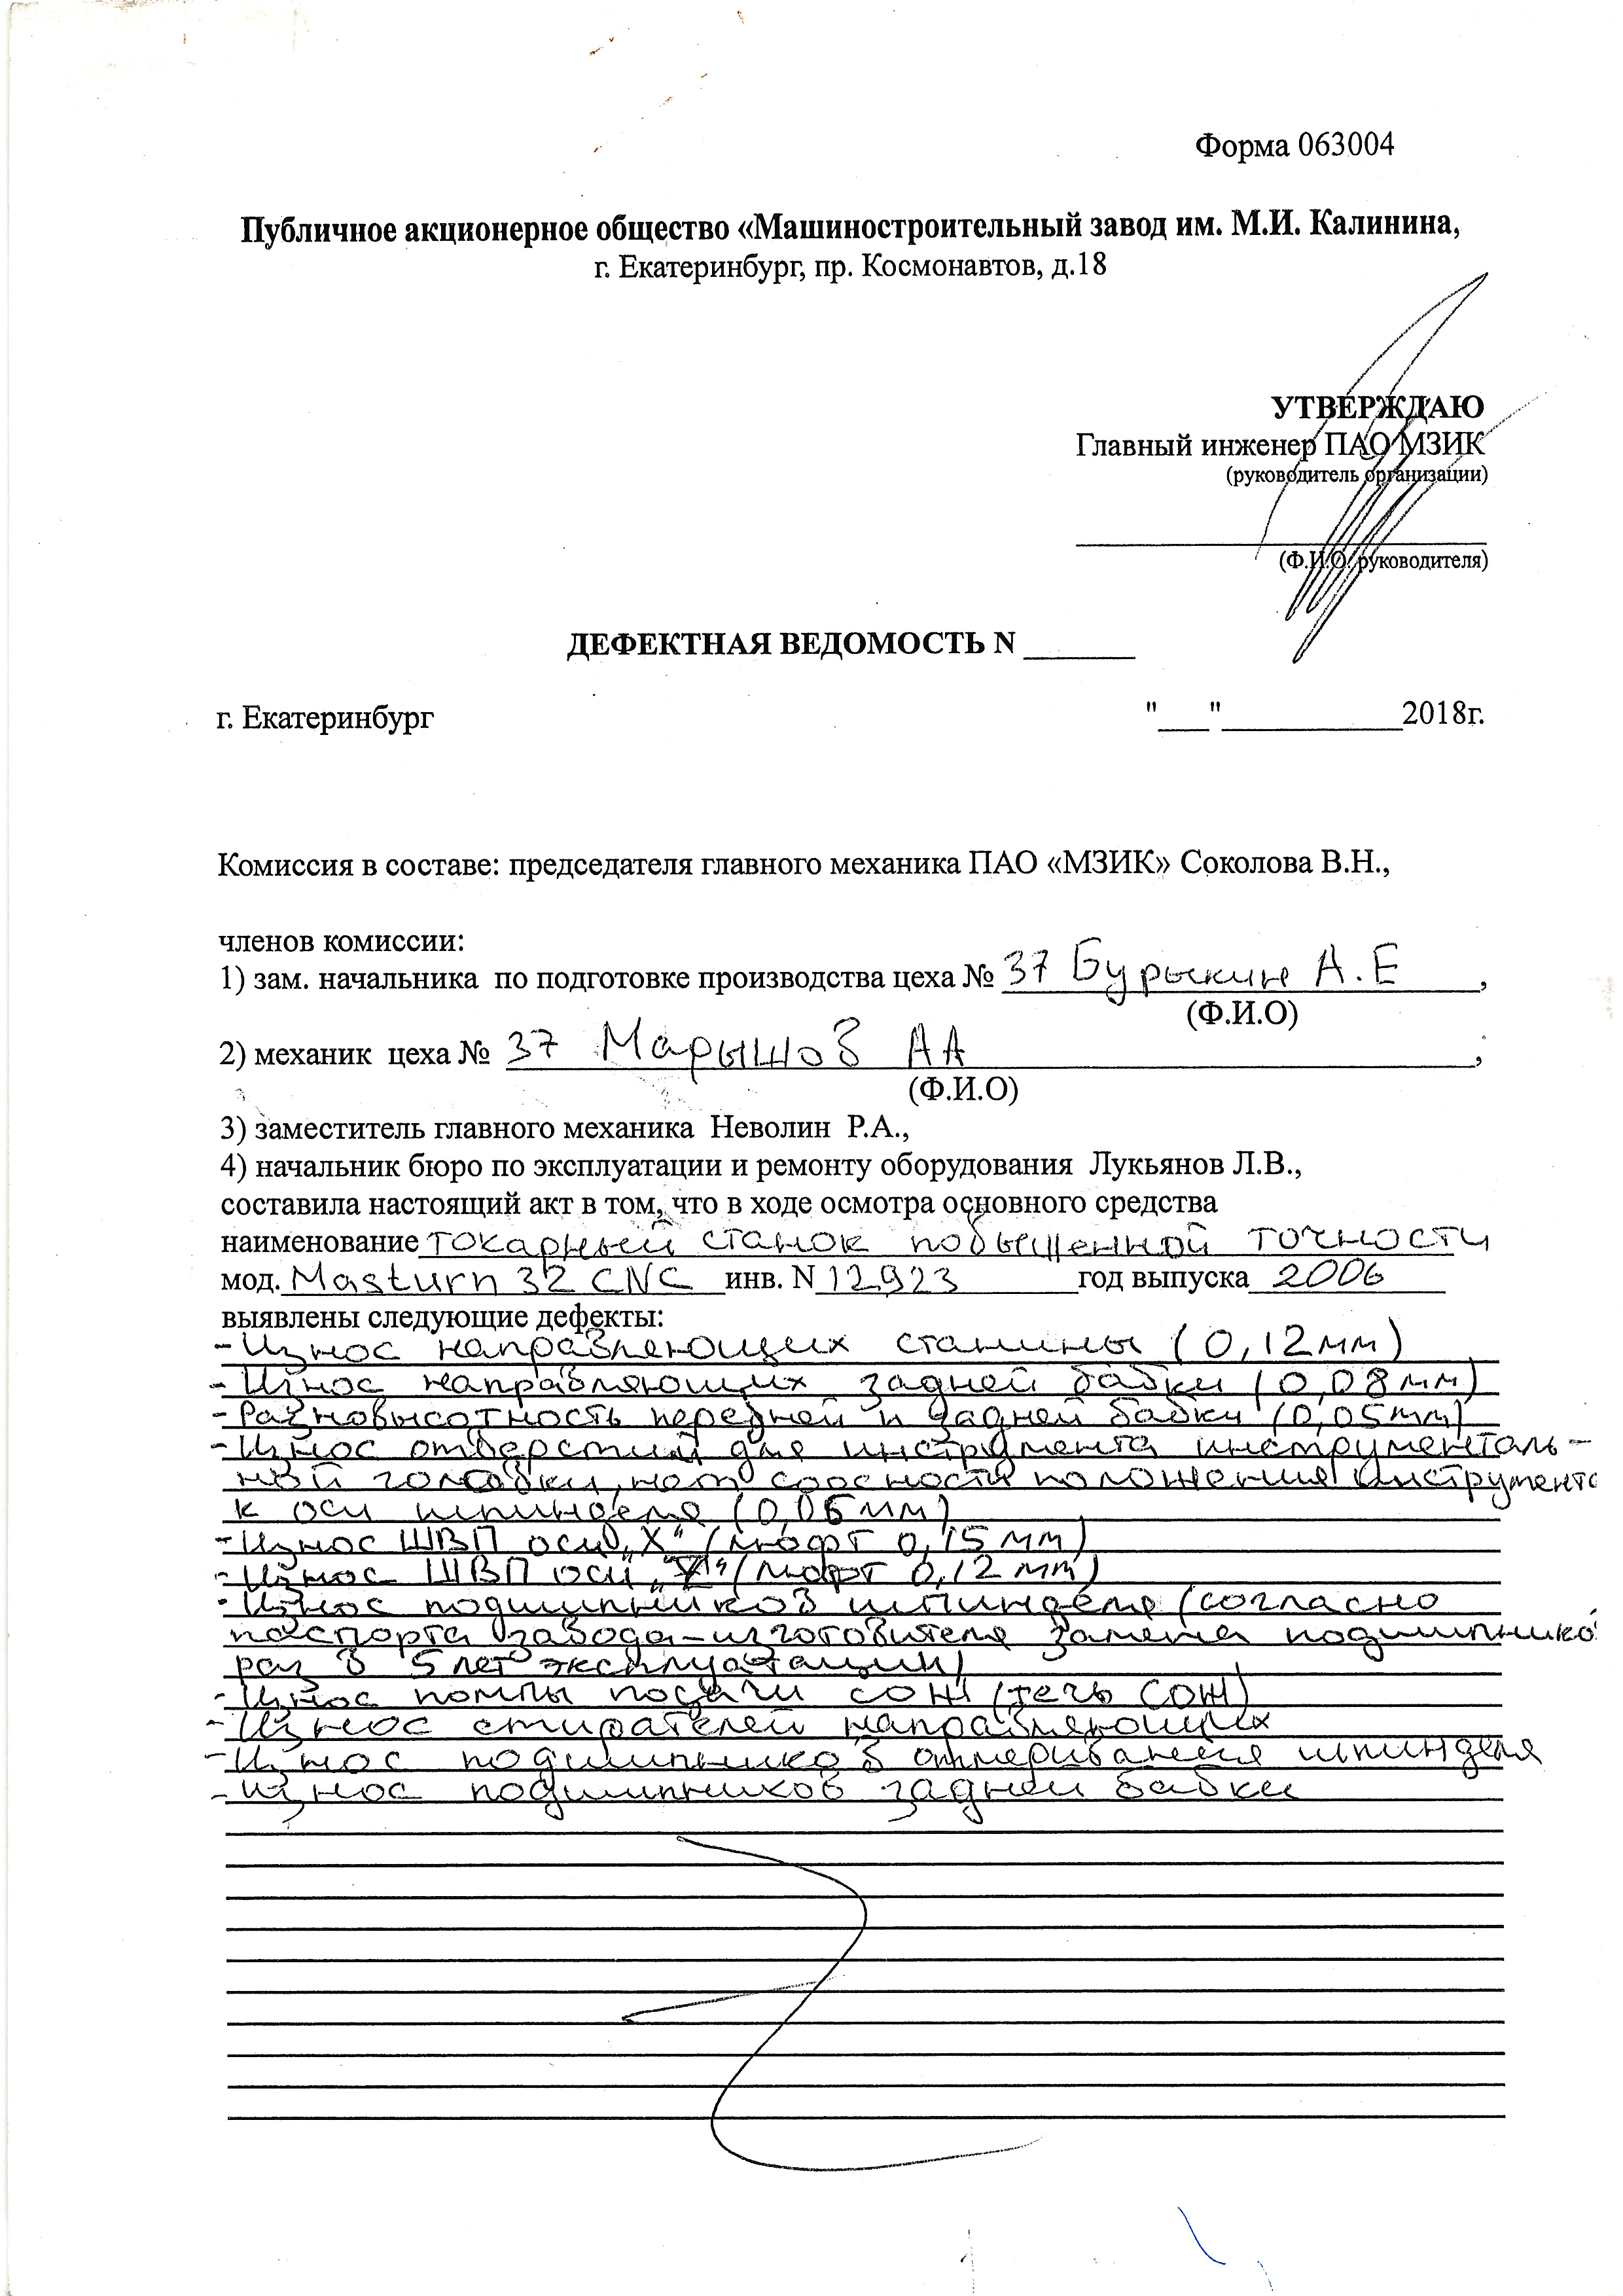 Форма 063004
Публичное акционерное общество «Машиностроительный завод им. М.И. Калинина,
г. Екатеринбург, пр. Космонавтов, д.18
УТВЕРЖДАЮ
Главный инженер ПАО МЗИК
(руководитель организации)
(Ф.И.О. руководителя)
ДЕФЕКТНАЯ ВЕДОМОСТЬ N _______
г. Екатеринбург "___"___________2018г.
Комиссия в составе: председателя главного механика ПАО «МЗИК» Соколова В.Н.,
членов комиссии:
1) зам. начальника по подготовке производства цеха № 37 Бурыкин А.Е,
(Ф.И.О)
2) механик цеха № 37 Марышов АА,
(Ф.И.О)
3) заместитель главного механика Неволин Р.А.,
4) начальник бюро по эксплуатации и ремонту оборудования Лукьянов Л.В.,
составила настоящий акт в том, что в ходе осмотра основного средства
наименование токарный станок повышенной точности
мод. Masturn 32 CNC инв. N 12923 год выпуска 2006
выявлены следующие дефекты:
- Износ направляющих станины (0,12мм)
- Износ направляющих задней бабки (0,08мм)
- Разновысотность передней и задней бабки (0,05мм)
- Износ отверстий для инструмента инструменталь-
ной головки, нет соосности положения инструмента
к оси шпинделя (0,06мм)
- Износ ШВП оси „X" (люфт 0,15мм)
- Износ ШВП оси „Z" (люфт 0,12мм)
- Износ подшипников шпинделя (согласно
паспорта завода-изготовителя замена подшипников
раз в 5 лет эксплуатации)
- Износ помпы подачи СОЖ (течь СОЖ)
- Износ стирателей направляющих
- Износ подшипников шпинделя
- Износ подшипников задней бабки